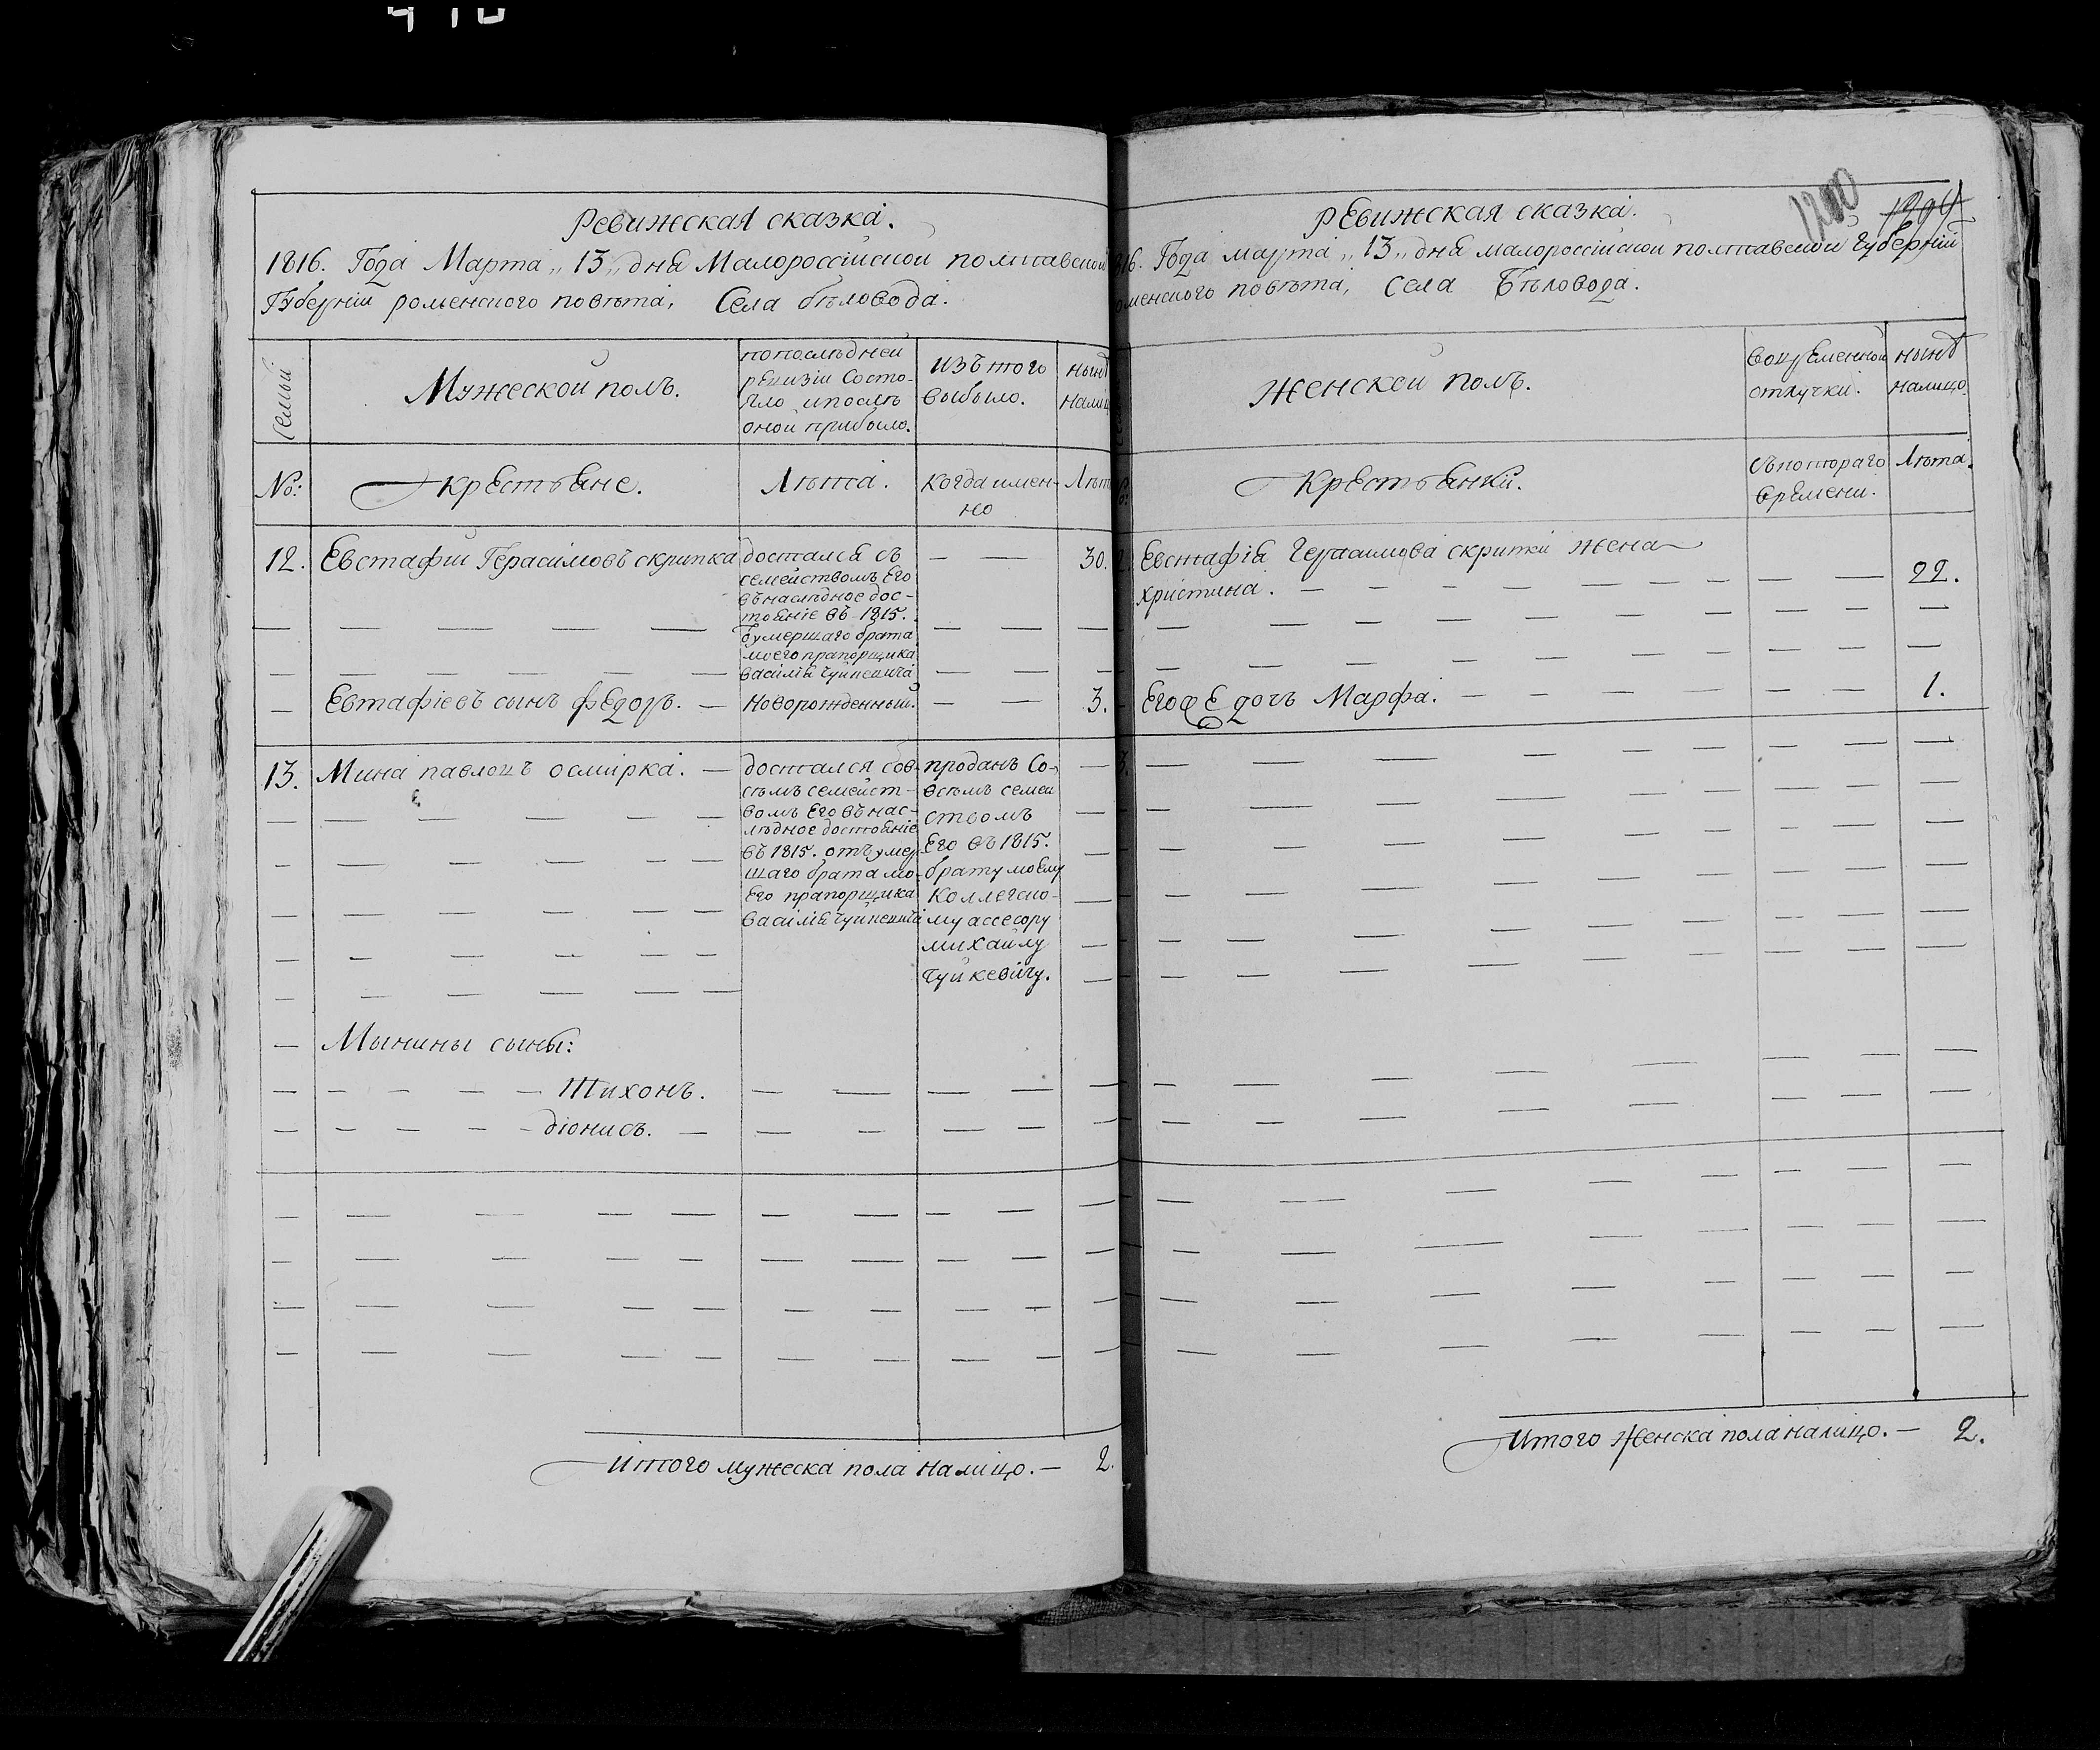 Ревижская сказка.
1816. Года Марта „13„ дня Малороссійской полтавской
Губерніи роменского повѣта, Села бѣловода.
семьи
Мужеской полъ.
попослѣдней
ревизіи Состо-
яло ипослѣ
оной прибыло.
изъ того
выбыло.
нынѣ
налиц
№:
крестьяне.
Лѣта.
когда имен-
но
Лѣт
12. Евстафий Герасимовъ скрипка
достался съ
семействомъ Его
въ наслѣдное дос-
тояніе въ 1815.
умершаго брата
моего прапорщика
василія Чуйкевича
30.
Евтафіевъ сынъ федоръ.
Новорожденный.
3.
13. Мина павловъ осмирка.
достался сов-
сѣмъ семейст-
вомъ Его въ нас-
лѣдное достояніе
въ 1815. отъ умер
шаго брата мо-
Его прапорщика
василія Чуйкевича
проданъ Со-
всѣмъ семей
ством
Его въ 1815.
брату моему
коллегско-
му ассесору
михайлу
Чуйкевичу.
Мынины сыны:
Тихонъ.
діонисъ.
Итого мужеска пола налицо. — 2.
1200
1294
Ревижская сказка.
816. Года марта „13„ дня малороссійской полтавской губерніи
оменского повѣта, села Бѣловода.
Женской полъ.
вовременной
отлучки.
нынѣ
налицо.
Крестьянки.
съкотораго
времени.
Лѣта.
Евстафія Герасимова скрипки жена
христина. 22.
Его же дочь Марфа. 1.
Итого Женска пола налицо. — 2.